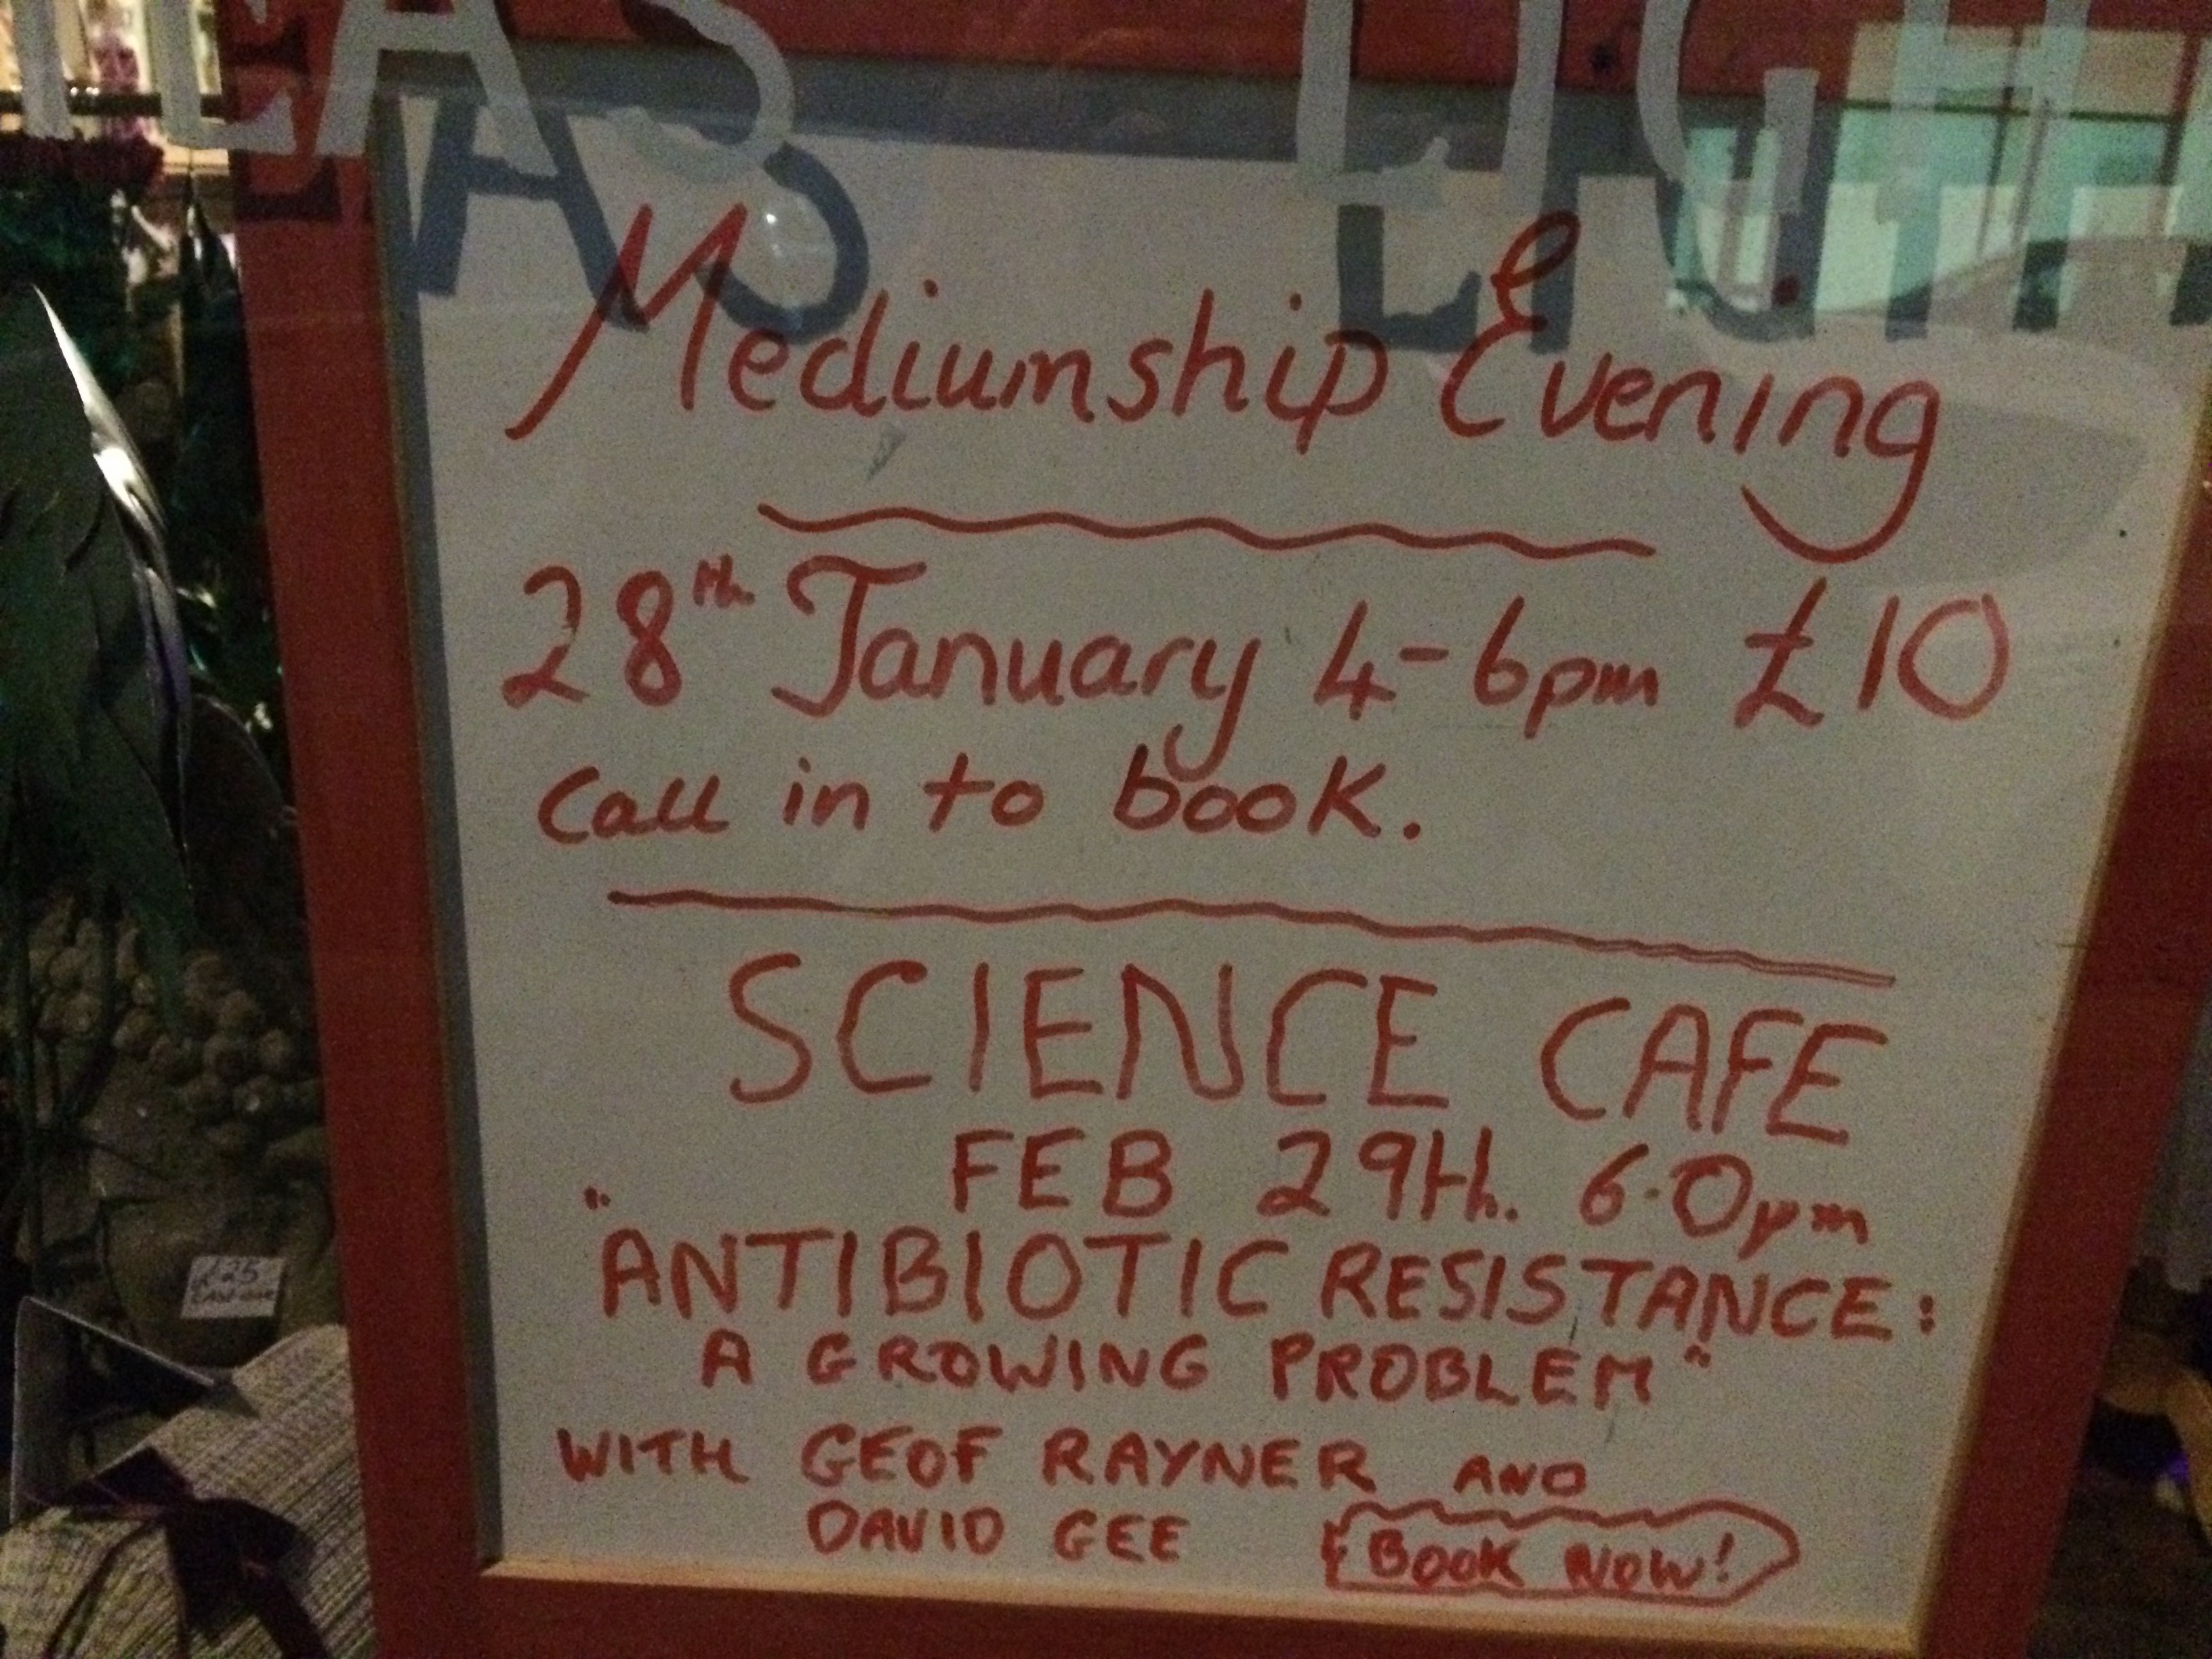 TEAS LIGH
Mediumship Evening
28th January 4-6pm £10
Call in to book.
SCIENCE CAFE
FEB 29th. 6.0pm
"ANTIBIOTIC RESISTANCE:
A GROWING PROBLEM"
WITH GEOF RAYNER AND
DAVID GEE BOOK NOW!
£25